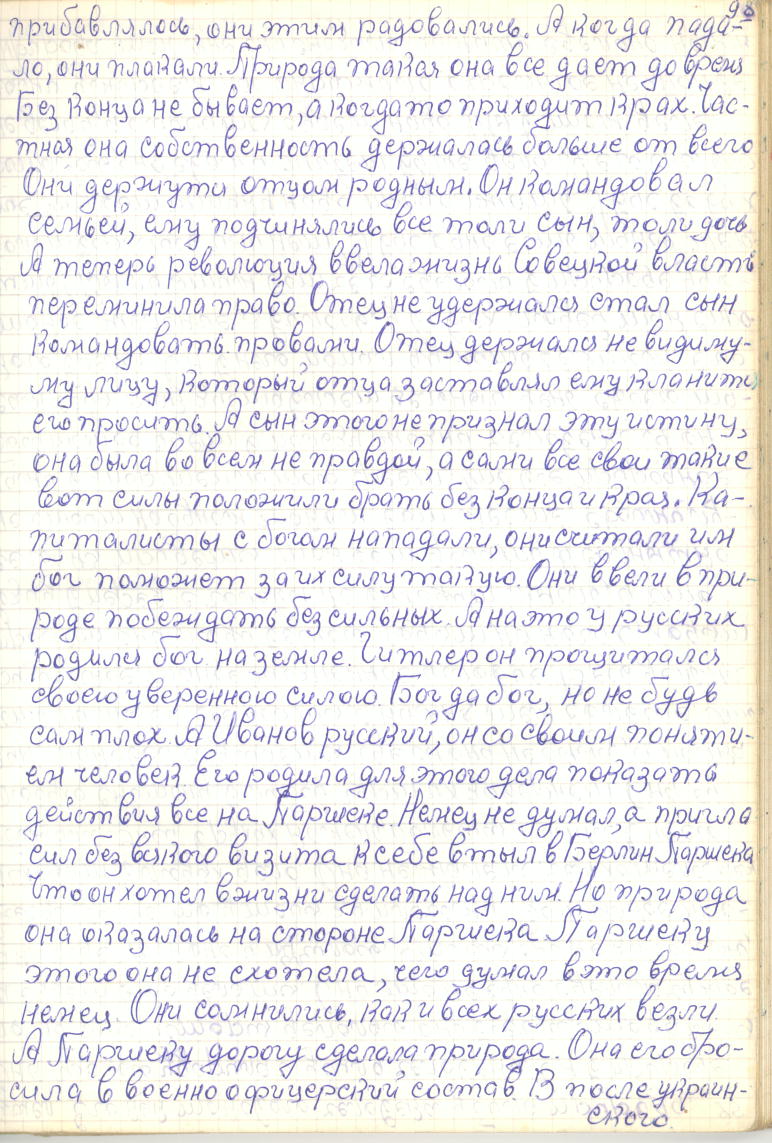 90
прибавлялось, они этим радовались. А когда пада-
ло, они плакали. Природа такая она все дает до время
Без конца не бывает, а когда то приходит крах. Час-
тная она собственность держалась больше от всего
Они держути отцом родным. Он командовал
семьей, ему подчинялись все толи сын, толи дочь
А теперь революция ввела жизнь Совецкой власть
переминила право. Отец не удержался стал сын
командовать провами. Отец держался не видиму-
му лицу, который отца заставлял ему кланится
его просить. А сын этого не признал эту истину,
она была во всем не правдой, а сами все свои такие
вот силы положили брать без конца и края. Ка-
питалисты с богом нападали, они считали им
бог поможет за их силу такую. Они ввели в при-
роде побеждать без сильных. А на это у русских
родился бог на земле. Гитлер он прощитался
своею уверенною силою. Бог да бог, но не будь
сам плох. А Иванов русский, он со своим поняти-
ем человек. Его родила для этого дела показать
действия все на Паршеке. Немец не думал, а пригла
сил без всякого визита к себе в тыл в Берлин Паршека
Что он хотел в жизни сделать над ним. Но природа
она оказалась на стороне Паршека Паршеку
этого она не схотела, чего думал в это время
немец. Они сомнились, как и всех русских везли.
А Паршеку дорогу сделала природа. Она его бро-
сила в военно офицерский состав. В после украин-
ского